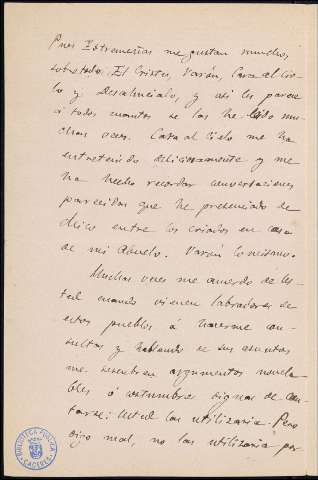 Pues Extremeñas me gustan mucho,
sobretodo, El Cristu, Varón, Cara al Cie-
lo y Desahuciado, y asi les parece
á todos cuantos se las he leido mu-
chas veces. Cara al Cielo me ha
entretenido deliciosamente y me
ha hecho recordar conversaciones
parecidas que he presenciado de
chico entre los criados en casa
de mi abuelo. Varón lo mismo.
Muchas veces me acuerdo de Us-
ted cuando vienen labradores de
estos pueblos á hacerme con-
sultas y hablando de sus asuntos
me descubren argumentos novela-
bles ó costumbres dignas de can-
tarse: Usted las utilizaria. Pero
digo mal, no las utilizaria por
BIBLIOTECA PUBLICA
CACERES